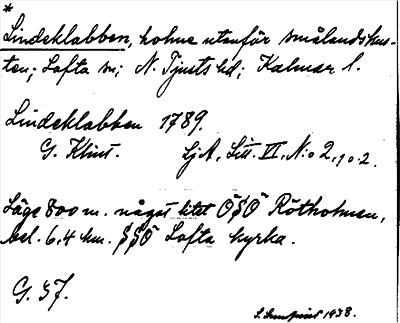 *
Lindeklabben, holme utanför smålandskus-
ten; Lofta sn; N. Tjusts hd; Kalmar l.
Lindeklabben 1789.
G. Klint. SjA, Litt. VI, N:o 2, 1 o. 2.
Läge 800 m. något litet ÖSÖ Rötholmen,
bel. 6,4 km. SSÖ Lofta kyrka.
G. 37.
1938.